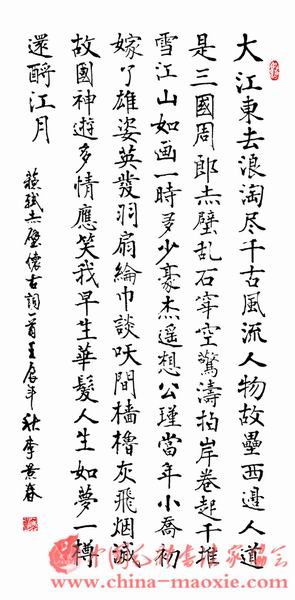 大江東去浪淘尽千古風流人物故壘西邊人道
是三國周郎赤壁乱石穿空驚濤拍岸卷起千堆
雪江山如画一時多少豪杰遥想公瑾當年小喬初
嫁了雄姿英發羽扇綸巾談笑間檣櫓灰飛烟滅
故國神遊多情應笑我早生華髮人生如夢一樽
還酹江月
蘇軾赤壁懷古詞一首壬辰年秋李景春
www.china-maoxie.com